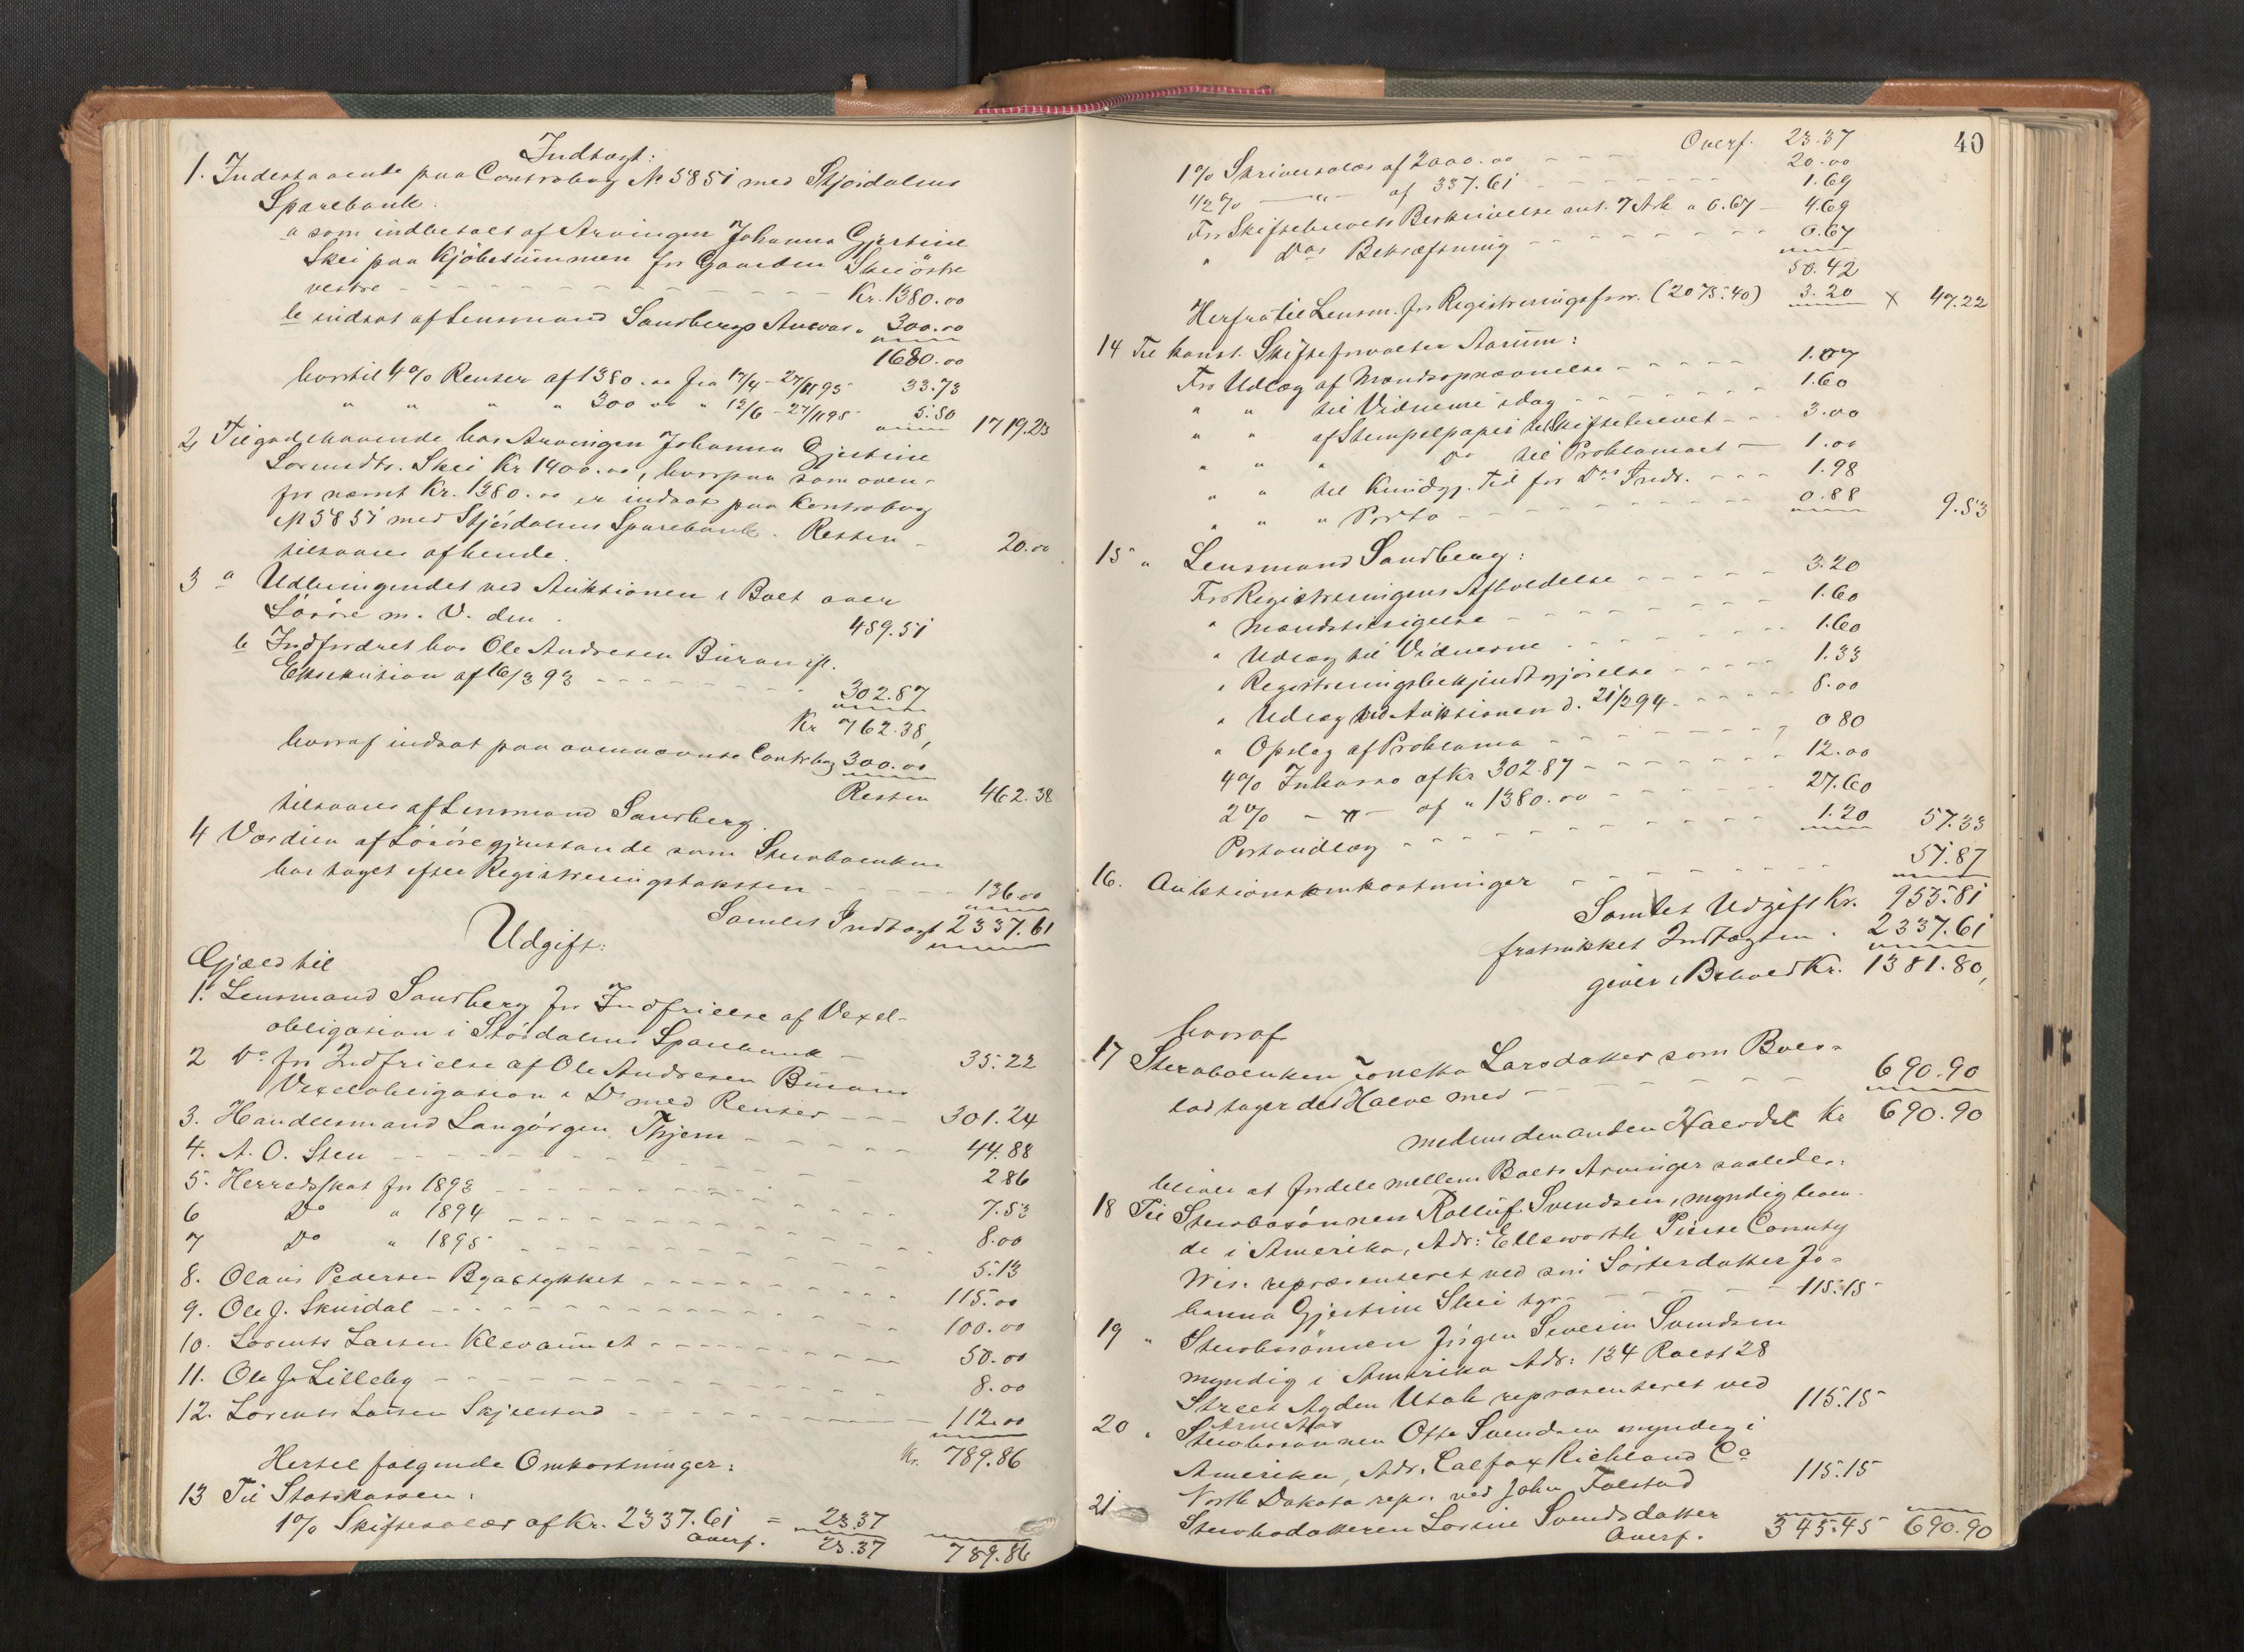 Indtægt:
1. Indestaaende paa Contrabog № 5851 med Stjørdalens
Sparebank.
a som indbetalt af Arvingen Johanna Gjertine
Skei paa Kjøbesummen for Gaarden Skei østre
vestre - - - Kr. 1380.00
b indsat af Lensmand Sandbergs Ansvar " 300.00
1680.00
hvortil 4% Renter af 1380.00 fra 17/4 - 27/11 95 33.73
" " " " 300.00 " 12/6 - 27/11 95 5.50 1719.23
2, Tilgodehavende hos Arvingen Johanna Gjertine
Lorentsdtr. Skei Kr 1400.00, hvorpaa som oven-
for nævnt Kr. 1380.00 er indsat paa Kontrabog
№ 5851 med Stjørdalens Sparebank. Resten -
tilsvares af hende. 20.00
3 a Udbringendet ved Auktionen i Boet over
Løsøre m. V. den . 459.51
b Indfordret hos Ole Andresen Buran ifl.
Eksekution af 16/3 93 - - - 302.87
Kr 762.38,
hvoraf indsat paa ovennævnte Contrabog 300.00
Resten 462.38
tilsvares af Lensmand Sandberg.
4 Værdien af Løsøregjenstande som Sterboenken
har taget efter Registreringstaksten - - - 136.00
Samlet Indtægt 2337.61
Udgift:
Gjæld til
1. Lensmand Sandberg for Indfrielse af Vexel-
obligasion i Stördalens Sparebank - 35.22
2 Do for Indfrielse af Ole Andresen Burans
Vexelobligasion i Do med Renter - - 301.24
3. Handelsmand Langørgen, Thjem - - - 44.88
4. A. O. Sten - - - 2.86
5. Herredsskat for 1893 - - - 7.53
6 Do " 1894 - - - 8.00
7 Do " 1895 - - - 5.13
8. Olaus Pedersen Byastykket - - - 115.00
9. Ole J. Skuidal - - - 100.00
10. Lorents Larsen Klevaunet - - - 50.00
11. Ole J. Lilleby - - - 8.00
12. Lorents Larsen Skjelstad - - - 112.00
Kr. 789.86
Hertil følgende Omkostninger:
13 Til Statskassen:
1% Skiftesalær af Kr. 2337.61 = 23.37
Overf. 23.37 789.86
40
Overf. 23.37
1% Skriversalær af 2000.00 - - - 20.00
1/2% — " — af 337.61 - - - 1.69
For Skiftebrevets Beskrivelse ant. 7 Ark a 0.67 - 4.69
" Dos Bekræftning - - - 0.67
50.42
Herfra til Lensm. for Registreringsforr. (2075.40) 3.20 x 47.22
14 Til konst. Skifteforvalter Aarum:
For Udlæg af Mandsopnævnelse - - - 1.07
" " til Vidnerne idag - - - 1.60
" " af Stempelpapir til Skiftebrevet - - 3.00
" " " Do til Proklamaet - 1.00
" " til Kundgj. Tid for Dos Indr. - - - 1.98
" " " Porto - - - 0.88 9.53
15 " Lensmand Sandberg:
For Registreringens Afholdelse - - - 3.20
" Mandstilsigelse - - - 1.60
" Udlæg til Vidnerne - - - 1.60
" Registreringsbekjendtgjørelse - - - 1.33
" Udlæg ved Auktionen d. 21/2 94 - - - 8.00
" Opslag af Proklama - - - 0.80
4% Inkasso af Kr 302.87 - - - 12.00
2% - " - af " 1380.00 - - - 27.60
Portoudlæg - - - 1.20 57.33
16. Auktionsomkostninger - - - 51.87
Samlet Udgift Kr. 955.81
fratrukket Indtægten . 2337.61
giver i Behold Kr. 1381.80,
hvoraf
17 Sterboenken Jonetta Larsdatter som Boes-
lod tager det Halve med - - - 690.90
medens den anden Halvdel Kr 690.90
bliver at fordele mellem Boets Arvinger saaledes:
18 Til Sterbosønnen Rolluf Svendsen, myndig boen-
de i Amerika, Adr: Ellsworth Pierse Counuty
Wis. repræsenteret ved sin Søsterdatter Jo-
hanna Gjertine Skei tgr. - - - 115.15
19 " Sterbosønnen Jørgen Severin Svendsen
myndig i Amerika Adr: 134 Raest 28
Street Agden Utah repræsenteret ved
Arne Aas 115.15
20 " Sterbosønnen Otto Svendsen myndig i
Amerika, Adr. Calfax Richland Co
North Dakota repr. ved John Folstad 115.15
21 Sterbodatteren Lorine Svendsdatter
Overf. 345.45 690.90